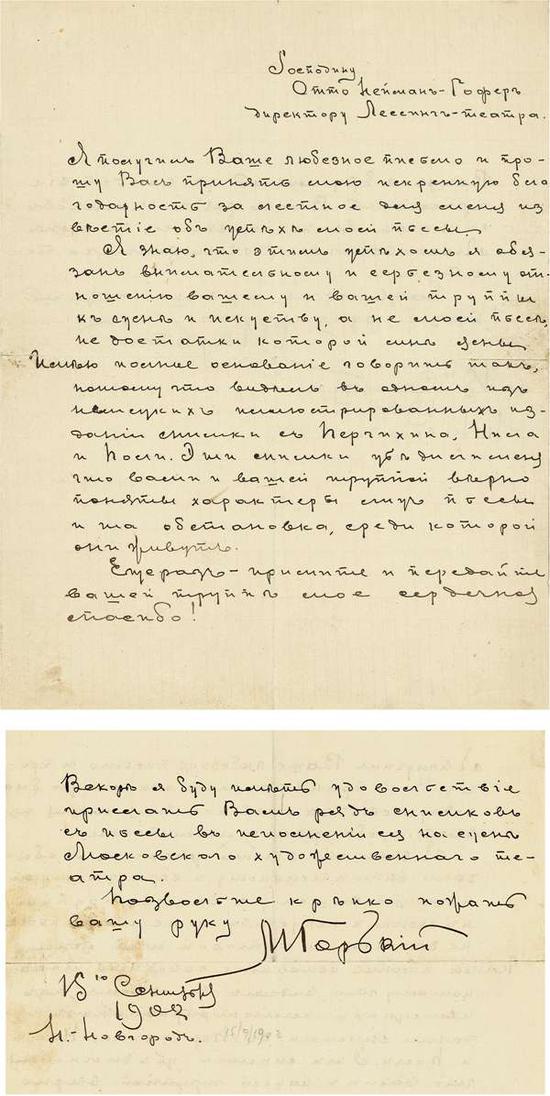 Господину
Отто Нейманъ-Гоферъ
директору Лессингъ-театра.
Я получилъ Ваше любезное письмо и про-
шу Васъ принять мою искреннюю бла
годарность за лестное для меня из
вѣстіе объ успѣхѣ моей пьесы.
Я знаю, что этимъ успѣхомъ я обя-
занъ внимательному и серьезному от-
ношенію вашему и вашей труппы
къ сценѣ и искуству, а не моей пьесѣ,
недостатки которой мнѣ ясны.
Имѣю полное основаніе говорить такъ,
потому что видѣлъ въ одномъ изъ
немецкихъ иллюстрированныхъ из-
даній снимки съ Перчихина, Нила
и Поли. Эти снимки убѣдили меня,
что вами и вашей труппой вѣрно
поняты характеры лицъ пьесы
и та обстановка, среди которой
они живутъ.
Ещеразъ - примите и передайте
вашей труппѣ мое сердечное
спасибо!
Вскорѣ я буду имѣть удовольствіе
прислать Вамъ рядъ снимковъ
съ пьесы въ исполненіи ея на сценѣ
Московскаго художественнаго те-
атра.
Позвольте крѣпко пожать
вашу руку
МГорькій
15го Сентября
1902
Н.-Новгородъ.